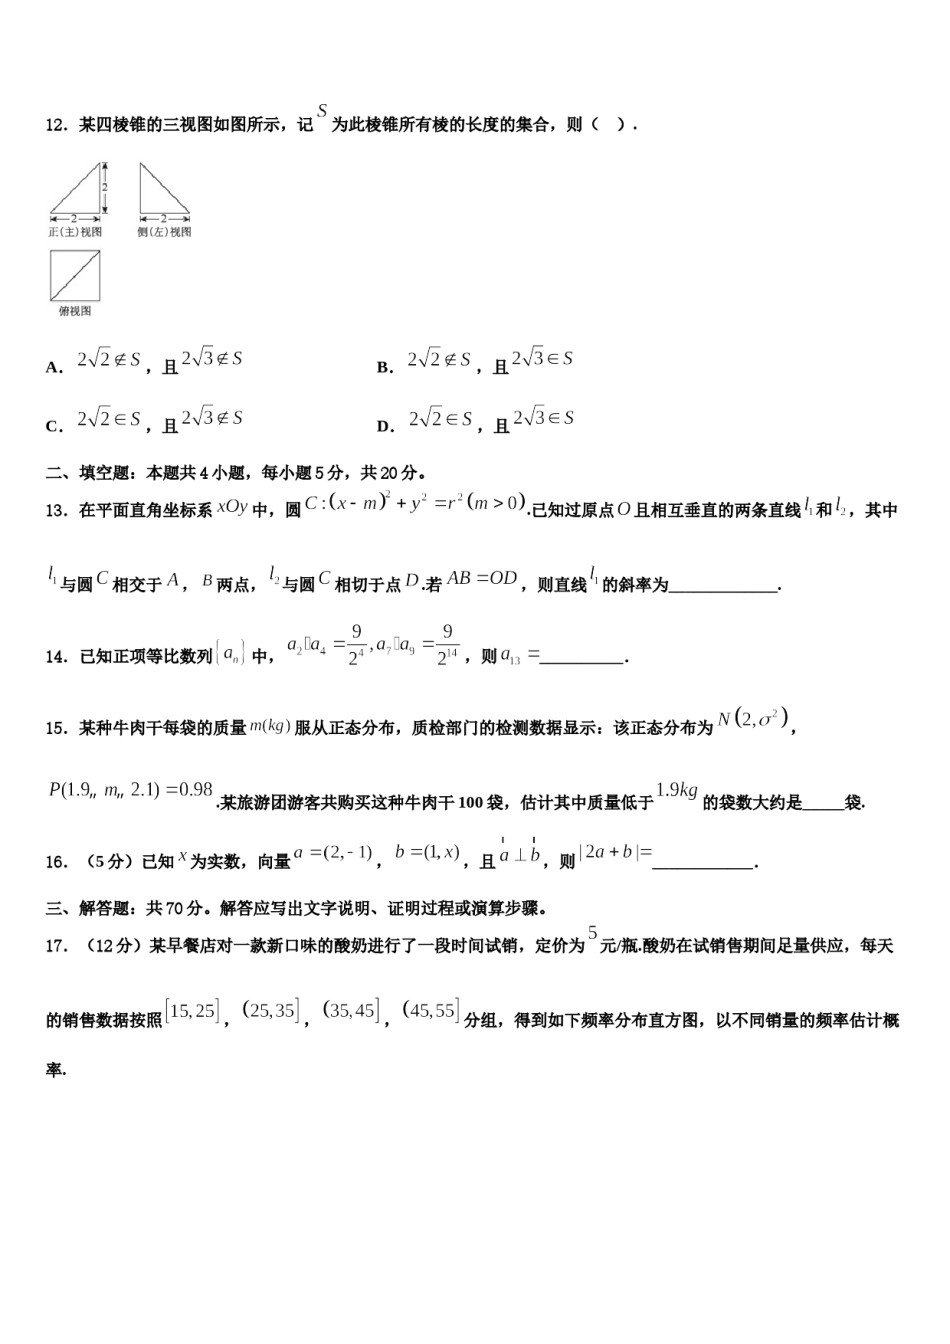 12．某四棱锥的三视图如图所示，记 S 为此棱锥所有棱的长度的集合，则（　）.
2
2
2
正(主)视图 侧(左)视图
俯视图
A． 2√2∉S ，且 2√3∉S B． 2√2∉S ，且 2√3∈S
C． 2√2∈S ，且 2√3∉S D． 2√2∈S ，且 2√3∈S
二、填空题：本题共 4 小题，每小题 5 分，共 20 分。
13．在平面直角坐标系 xOy 中，圆 C:(x−m)²+y²=r²(m>0).已知过原点 O 且相互垂直的两条直线 l₁ 和 l₂，其中
l₁ 与圆 C 相交于 A， B 两点， l₂ 与圆 C 相切于点 D.若 AB=OD，则直线 l₁ 的斜率为_____________.
14．已知正项等比数列{aₙ}中， a₂▯a₄=9/2⁴,a₇▯a₉=9/2¹⁴，则 a₁₃=__________.
15．某种牛肉干每袋的质量 m(kg) 服从正态分布，质检部门的检测数据显示：该正态分布为 N(2,σ²)，
P(1.9„ m„ 2.1)=0.98 .某旅游团游客共购买这种牛肉干 100 袋，估计其中质量低于 1.9kg 的袋数大约是_____袋.
16．（5 分）已知 x 为实数，向量 a=(2,-1)， b=(1,x)，且 a⊥b，则 |2a+b|=____________.
三、解答题：共 70 分。解答应写出文字说明、证明过程或演算步骤。
17．（12 分）某早餐店对一款新口味的酸奶进行了一段时间试销，定价为 5 元/瓶.酸奶在试销售期间足量供应，每天
的销售数据按照 [15,25]， (25,35]， (35,45]， (45,55] 分组，得到如下频率分布直方图，以不同销量的频率估计概
率.